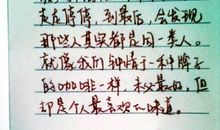 走走停停，到最后，会发现
那些人其实都是同一类人。
就像我们钟情于一种牌子
的咖啡一样，未必最好，但
却是个人最喜欢的味道。